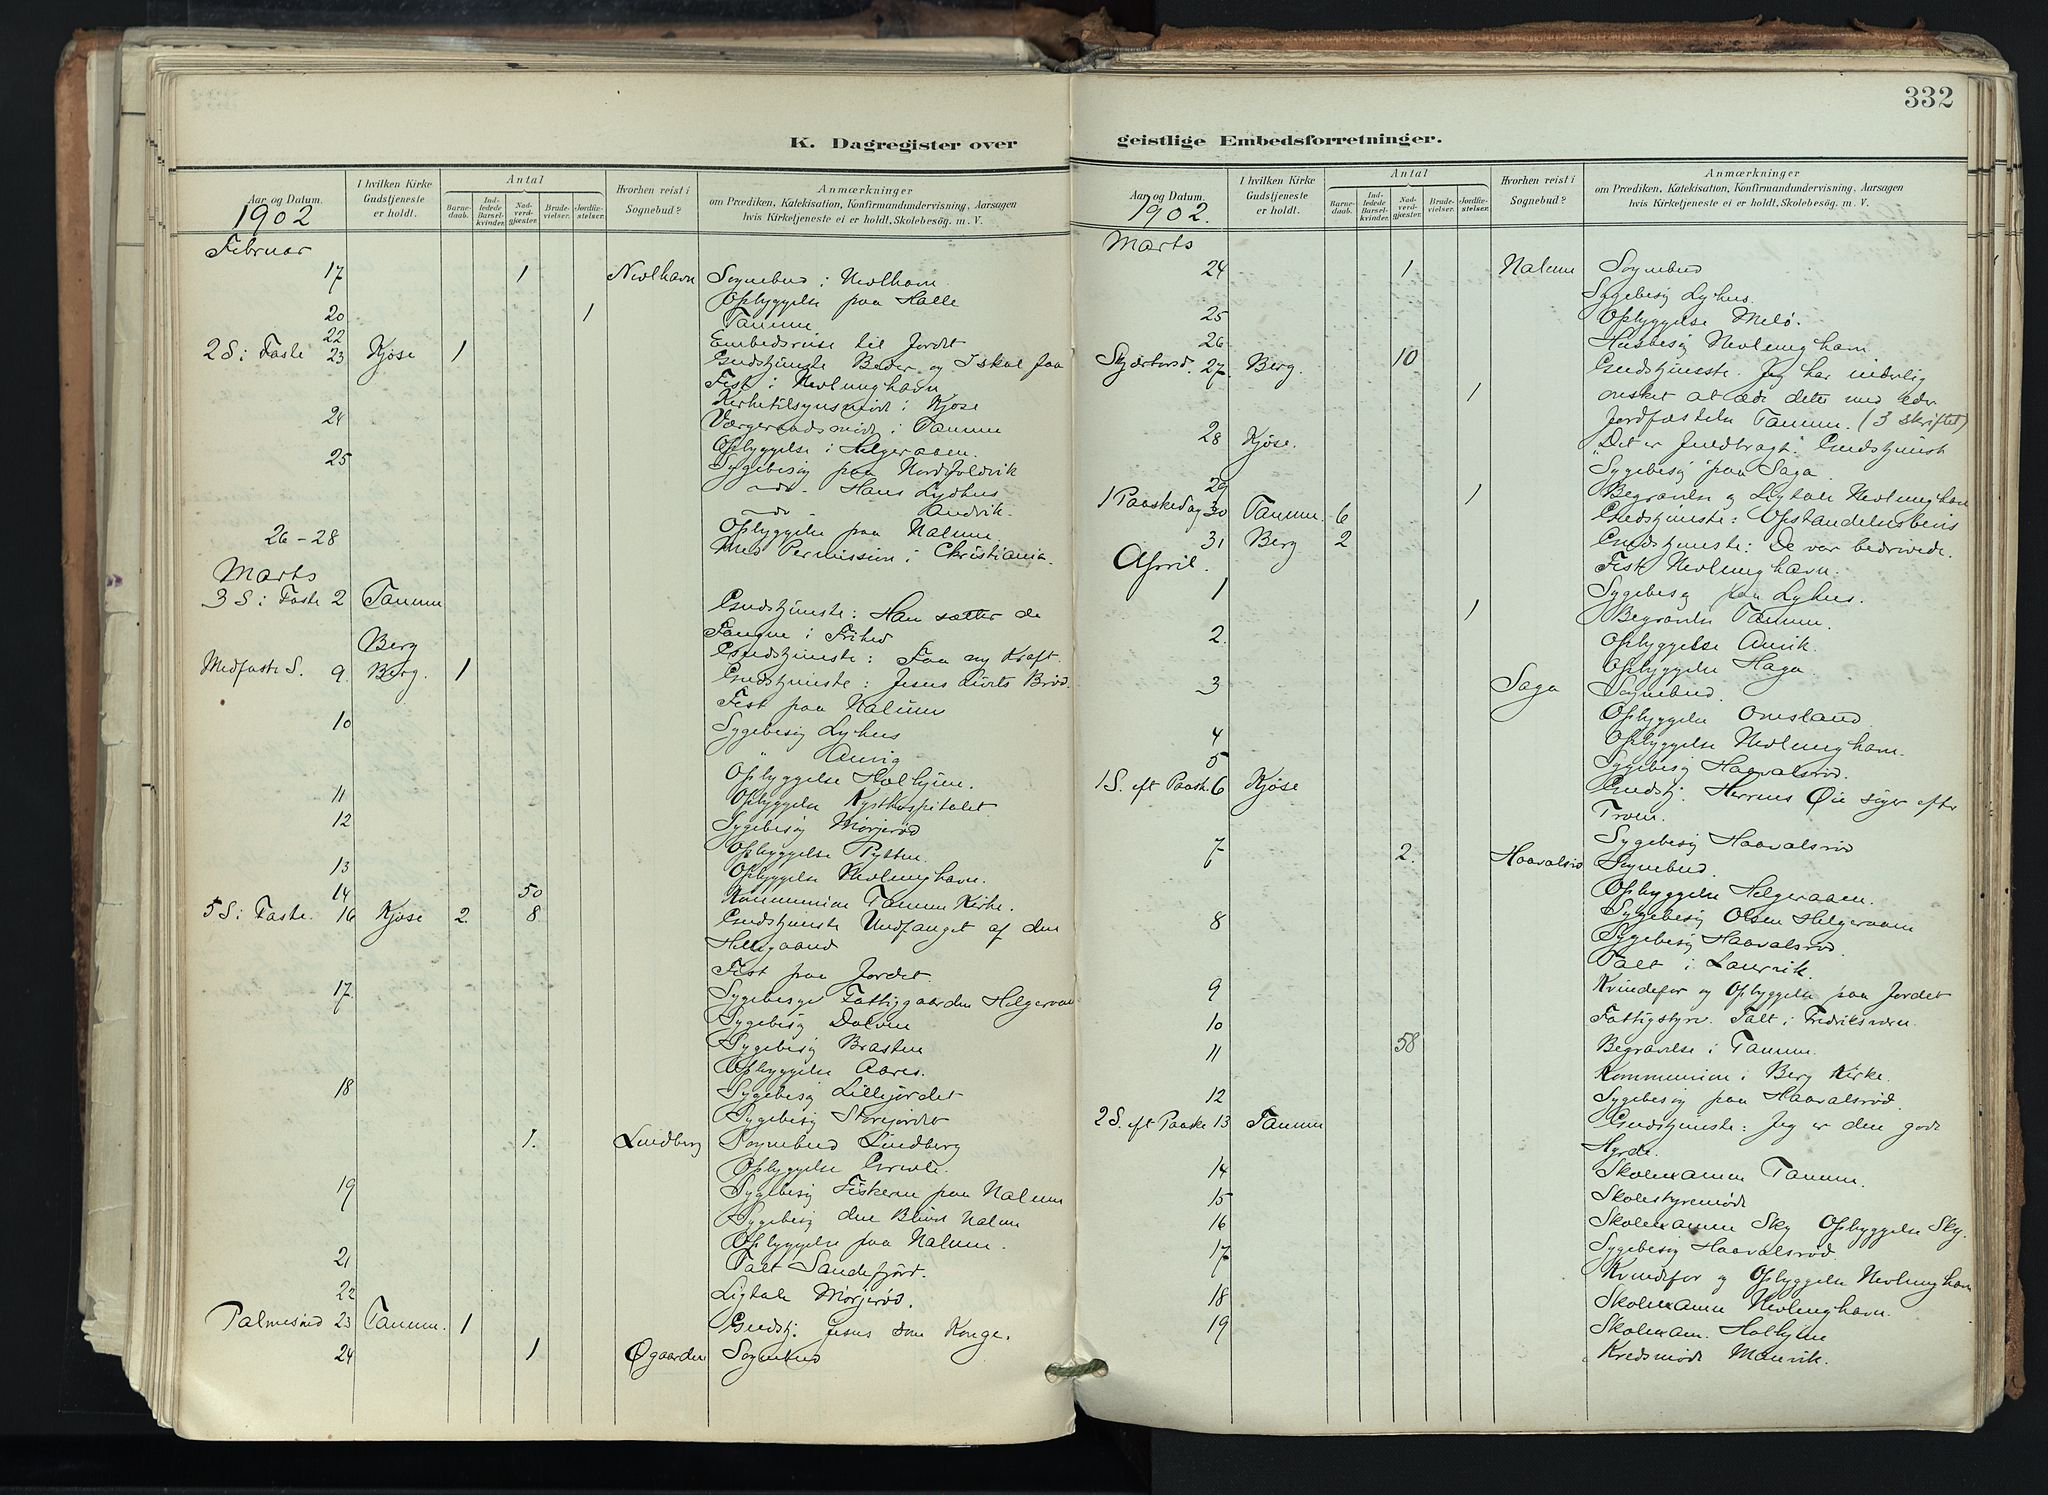 332
K. Dagregister over geistlige Embedsforretninger.
Aar og Datum.
I hvilken Kirke Gudstjeneste er holdt.
Antal
Barnedaab.
Indledede Barselkvinder.
Nadverdgjæster.
Brudevielser.
Jordfæstelser.
Hvorhen reist i Sognebud?
Anmærkninger
om Prædiken, Katekisation, Konfirmandundervisning, Aarsagen
hvis Kirketjeneste ei er holdt, Skolebesøg. m. V.
1902
Februar
17 1 Nevlhavn Sognebud i Nevlhavn
Opbyggelse paa Halle
20 1 Tanum
22 Embedsreise til Jordet
2 S. i Faste 23 Kjøse 1 Gudstjeneste Beder og I skal faa
Fest i Nevlunghavn
Kirketilsynsmøde i Kjøse
24 Værgeraadsmøde i Tanum
Opbyggelse i Helgeraaen.
25 Sygebesøg paa Nordfoldvik
-do- Hans Lydhus
-do- Andvik.
Opbyggelse paa Nalum.
26-28 Med Permission i Christiania.
Marts
3 S. i Faste 2 Tanum Gudstjeneste: Han sætter de
Fangne i Frihed
Berg Gudstjeneste: Faa ny Kraft.
Midfaste S. 9. Berg. 1 Gudstjeneste: Jesus Livets Brød.
Fest paa Nalum
10 Sygebesøg Lyhus
" Anvig
Opbyggelse Holhjem.
11 Opbyggelse Kysthospitalet.
12 Sygebesøg Mørjerød
Opbyggelse Pytten.
13 Opbyggelse Nevlunghavn.
14 50 Kommunion Tanum Kirke.
5 S. i Faste. 16 Kjøse 2. 8 Gudstjeneste Undfanget af den
Helligaand
Fest paa Jordet.
17. Sygebesøg Fattiggaarden Helgeraaen
Sygebesøg Dolven
Sygebesøg Brasten
Opbyggelse Aares.
18 Sygebesøg Lillejordet
Sygebesøg Storejordet
1. Lindberg Sognebud Lindberg
Opbyggelse
19 Sygebesøg Fiskeren paa Nalum
Sygebesøg den Blinde Nalum
Opbyggelse paa Nalum.
21 Talt Sandefjord.
22 Ligtale Mørjerød.
Palmesønd 23 Tanum. 1 Gudstj. Jesus som Konge.
24 1 Øgaarden Sognebud
Aar og Datum.
I hvilken Kirke Gudstjeneste er holdt.
Antal
Barnedaab.
Indledede Barselkvinder.
Nadverdgjæster.
Brudevielser.
Jordfæstelser.
Hvorhen reist i Sognebud?
Anmærkninger
om Prædiken, Katekisation, Konfirmandundervisning, Aarsagen
hvis Kirketjeneste ei er holdt, Skolebesøg. m. V.
1902.
Marts
24 1 Nalum Sognebud
Sygebesøg Lyhus.
25 Opbyggelse Melø.
26 Husbesøg Nevlunghavn
Skjærtorsd. 27. Berg. 10 Gudstjeneste. Jeg har inderlig
1 ønsket at æde dette med Eder
Jordfæstelse Tanum. (3 skriftet)
28 Kjøse. "Det er fuldbragt." Gudstjeneste
Sygebesøg paa Saga.
29 1 Begravelse og Ligtale Nevlunghavn
1 Paaskedag 30 Tanum. 6 Gudstjeneste: Opstandelsesbevis
31 Berg 2 Gudstjeneste: De var bedrøvede.
April. Fest Nevlunghavn.
1 Sygebesøg paa Lyhus.
1 Begravelse Tanum.
2. Opbyggelse Anvik.
Opbyggelse Haga.
3 Saga Sognebud.
Opbyggelse Omsland.
4 Opbyggelse Nevlunghavn.
5 Sygebesøg Haavalsrød.
1 S. eft Paask. 6 Kjøse Gudstj. Herrens Øie siger efter
Troen.
Sygebesøg Haavalsrød
7 2. Haavalsrø Sognebud.
Opbyggelse Helgeraaen.
8 Sygebesøg Olsen Helgeraaen
Sygebesøg Haavalsrød.
Talt i Laurvik.
9 Kvindefor og Opbyggelse paa Jordet
10 Fattigstyre. Talt i Fredriksværn.
11 58 Begravelse i Tanum.
Kommunion i Berg Kirke.
12 Sygebesøg paa Haavalsrød.
2 S. eft Paaske 13 Tanum Gudstjeneste: Jeg er den gode
Hyrde.
14 Skolexamen Tanum.
15 Skolestyremøde
16 Skolexamen Sky Opbyggelse Sky.
17 Sygebesøg Haavalsrød.
Kvindefor og Opbyggelse Nevlunghavn
18 Skolexamen Nevlunghavn.
19 Skolexam. Holhjem
Kredsmøde Manvik.